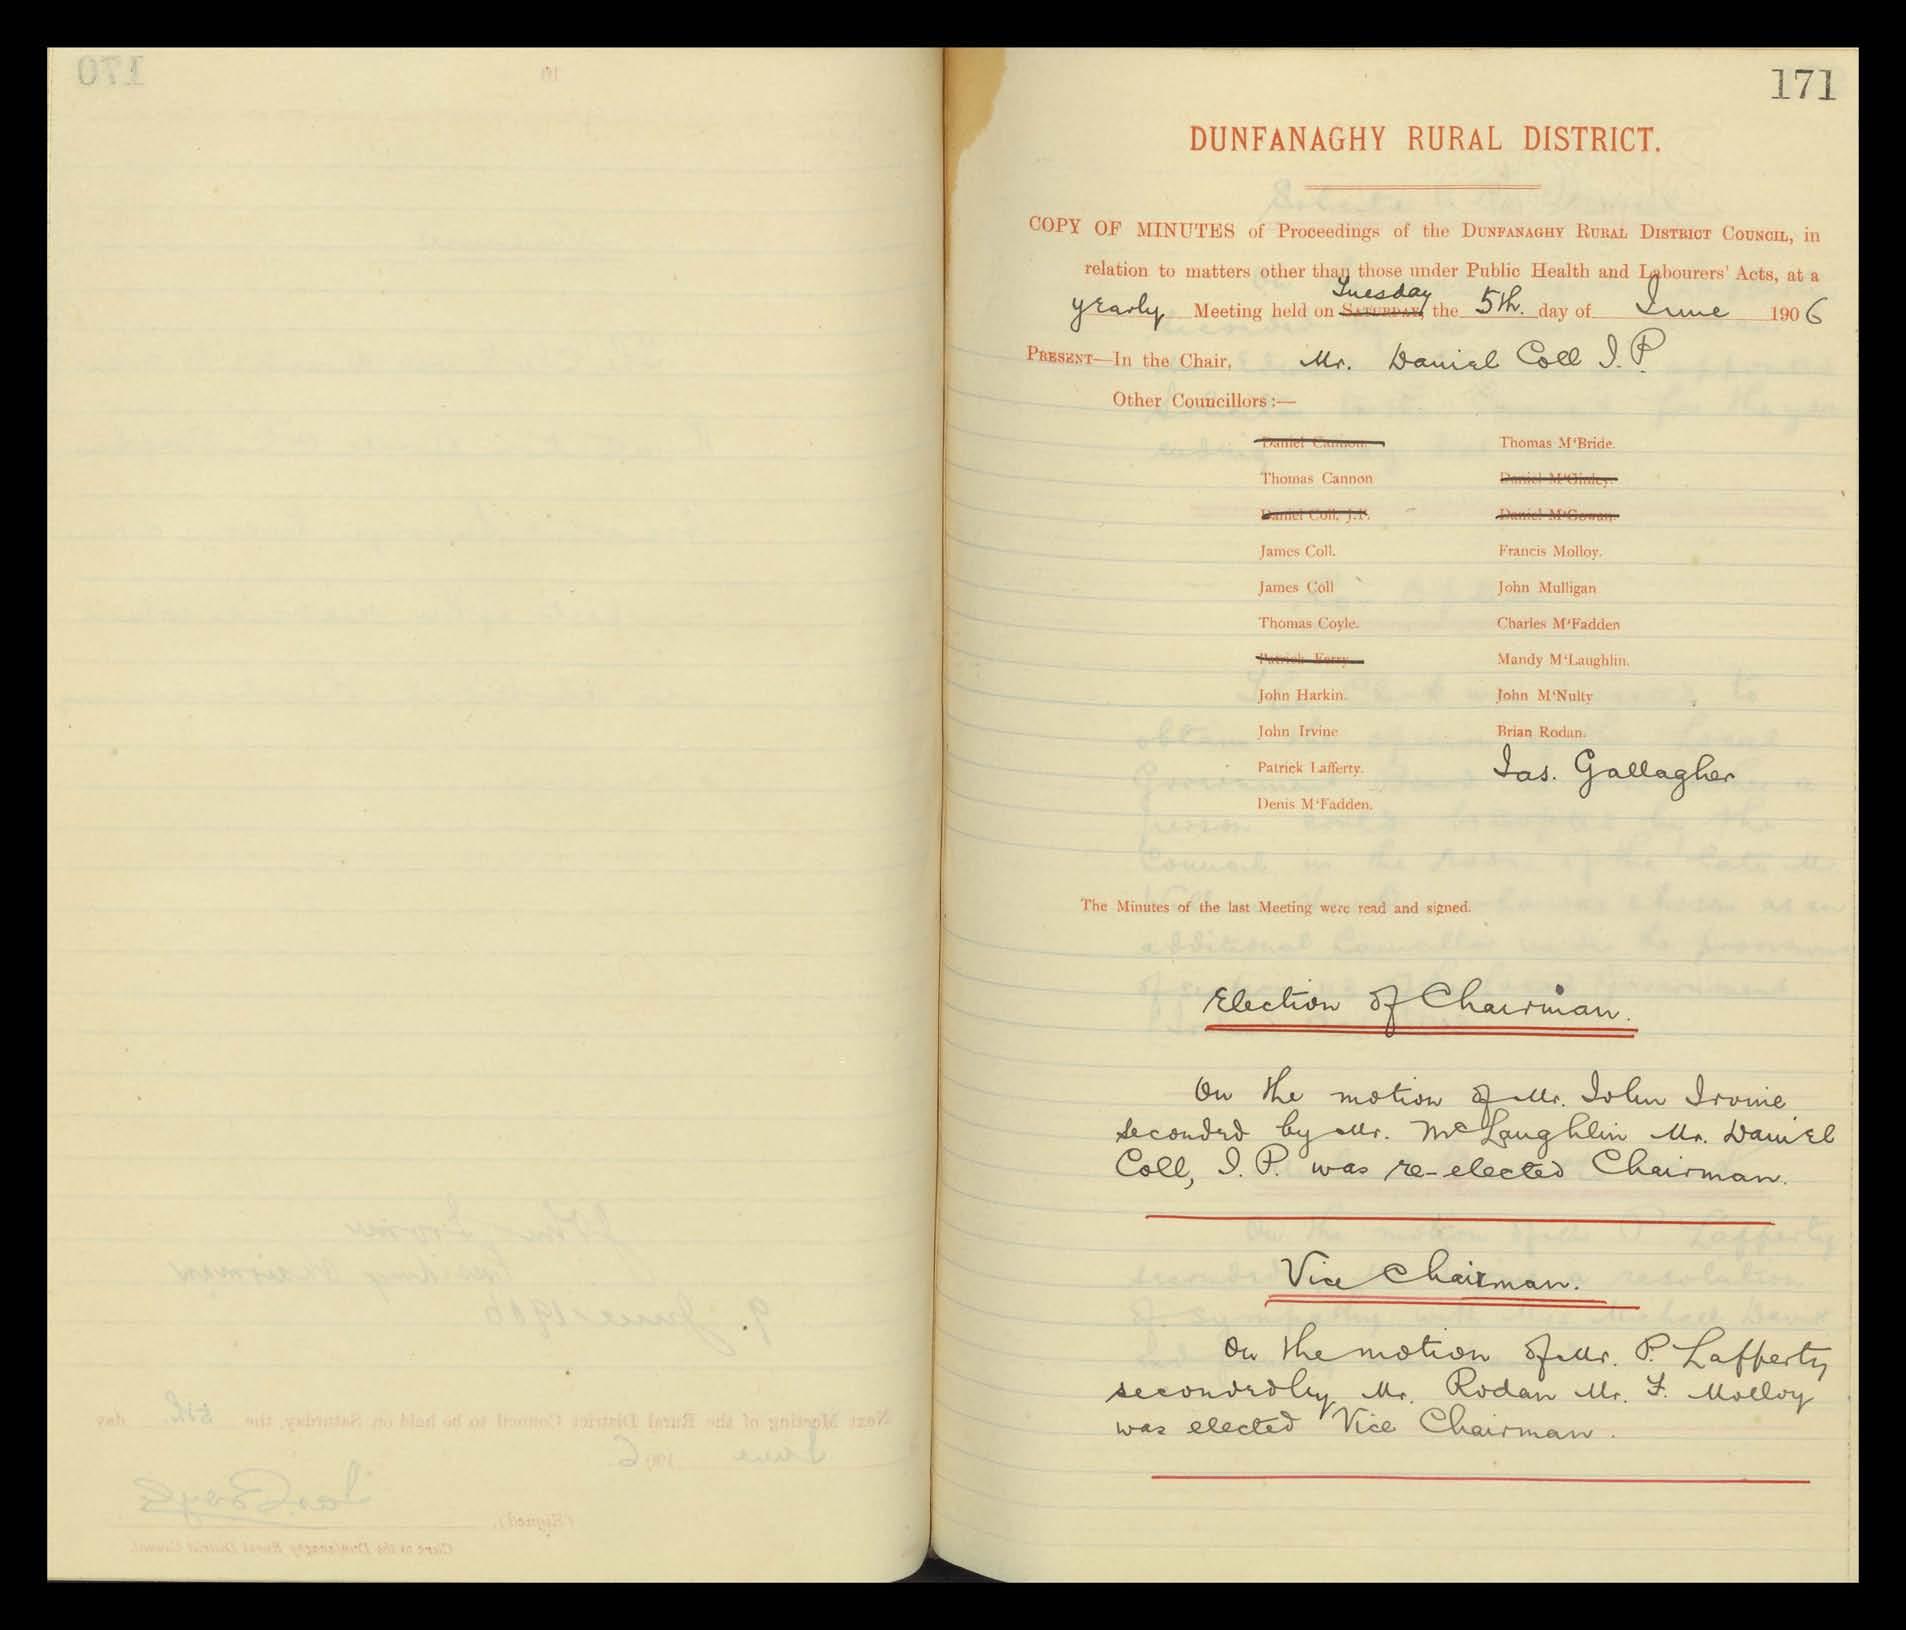 171
DUNFANAGHY RURAL DISTRICT.
COPY OF MINUTES of Proceedings of the DUNFANAGHY RURAL DISTRICT COUNCIL, in
relation to matters other than those under Public Health and Labourers' Acts, at a
Tuesday
yearly Meeting held on SATURDAY, the 5th. day of June 1906
PRESENT—In the Chair, Mr. Daniel Coll J.P.
Other Councillors:—
Daniel Cannon. Thomas M'Bride.
Thomas Cannon Daniel M'Ginley.
Daniel Coll, J.P. Daniel M'Gowan.
James Coll. Francis Molloy.
James Coll John Mulligan
Thomas Coyle. Charles M'Fadden
Patrick Ferry. Mandy M'Laughlin.
John Harkin. John M'Nulty
John Irvine Brian Rodan.
Patrick Lafferty. Jas. Gallagher
Denis M'Fadden.
The Minutes of the last Meeting were read and signed.
Election of Chairman.
On the motion of Mr. John Irvine
seconded by Mr. McLaughlin Mr. Daniel
Coll, J.P. was re-elected Chairman.
Vice Chairman.
On the motion of Mr. P. Lafferty
seconded by Mr. Rodan Mr. F. Molloy
was elected Vice Chairman.